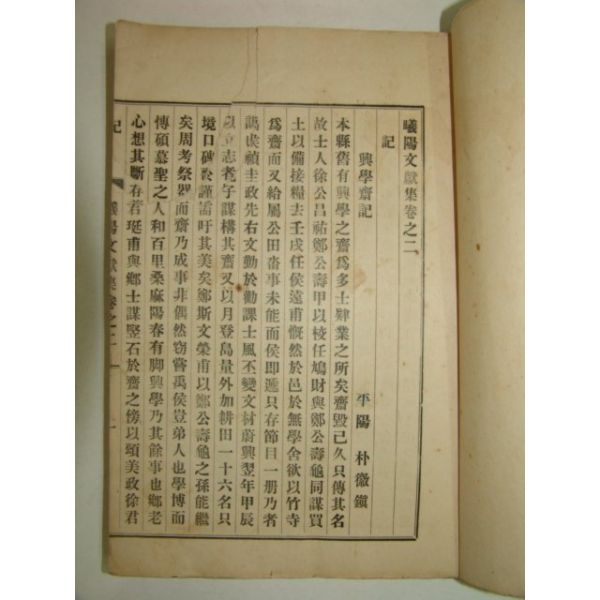 曦陽文獻集卷之二
記
興學齋記
平陽 朴徽鎭
本縣舊有興學之齋爲多士肄業之所矣齋毁已久只傳其名
故士人徐公昌祐鄭公壽甲以棱任鳩財與鄭公壽龜同謀買
土以備接糧去壬戌任侯遠甫慨然於邑於無學舍欲以竹寺
爲齋而又給屬公田畓事未能而侯即遞只存節目一册乃者
侯禎圭政先右文勤於勸課士風丕變文材蔚興翌年甲辰
立志耉字謀構其齋又以月登島量外加耕田一十六名只
境口碑 謹 吁其美矣鄭斯文榮甫以鄭公壽龜之孫能繼
矣周考祭器而齋乃成事非偶然窃嘗禹侯豈弟人也學博而
傳碩慕聖之人和百里桑麻陽春有脚興學乃其餘事也鄕老
心想其斷存君珽甫與鄕士謀竪石於齋之傍以頌美政徐君
記 曦陽文獻集卷之二 一